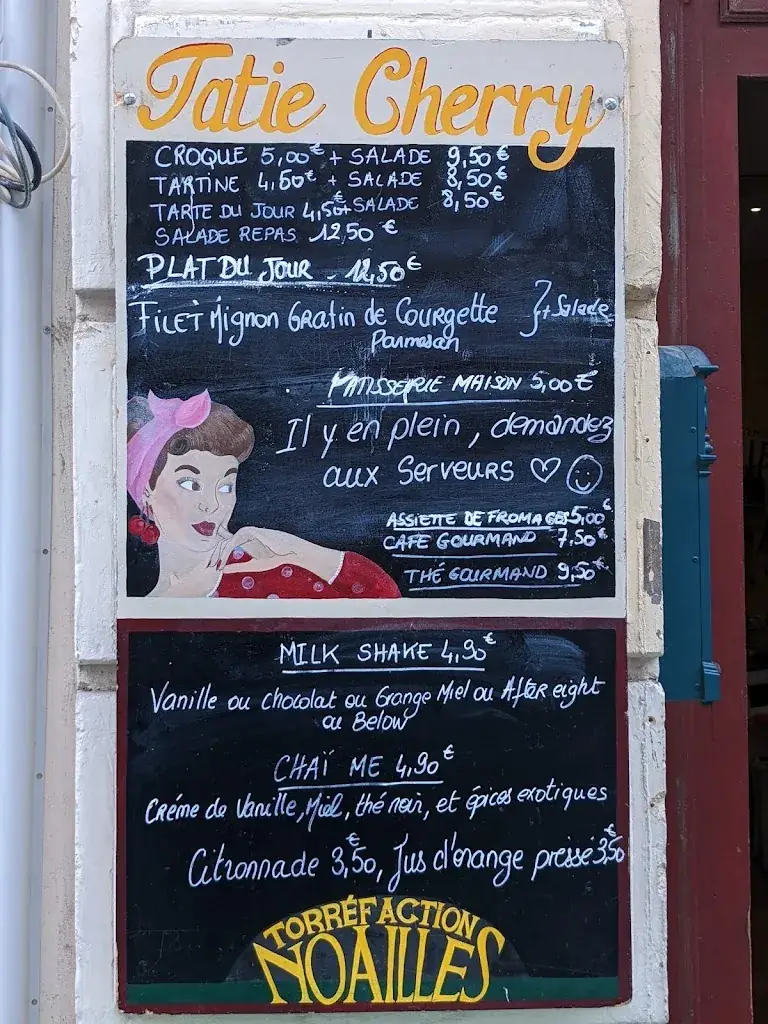 Tatie Cherry
CROQUE 5,00€ + SALADE 9,50€
TARTINE 4,50€ + SALADE 8,50€
TARTE DU JOUR 4,50€+SALADE 8,50€
SALADE REPAS 12,50€
PLAT DU JOUR - 12,50€
FILET Mignon Gratin de Courgette }+ Salade
Parmesan
PATISSERIE MAISON 5,00€
Il y en plein, demandez
aux Serveurs ♡ ☺
ASSIETTE DE FROMAGES 5,00€
CAFE GOURMAND 7,50€
THÉ GOURMAND 9,50€
MILK SHAKE 4,90€
Vanille ou chocolat ou Orange Miel ou After eight
ou Below
CHAÏ ME 4,90€
Créme de Vanille, Miel, thé noir, et épices exotiques
Citronnade 3,50€, Jus d'orange pressé 3,50€
TORRÉFACTION
NOAILLES